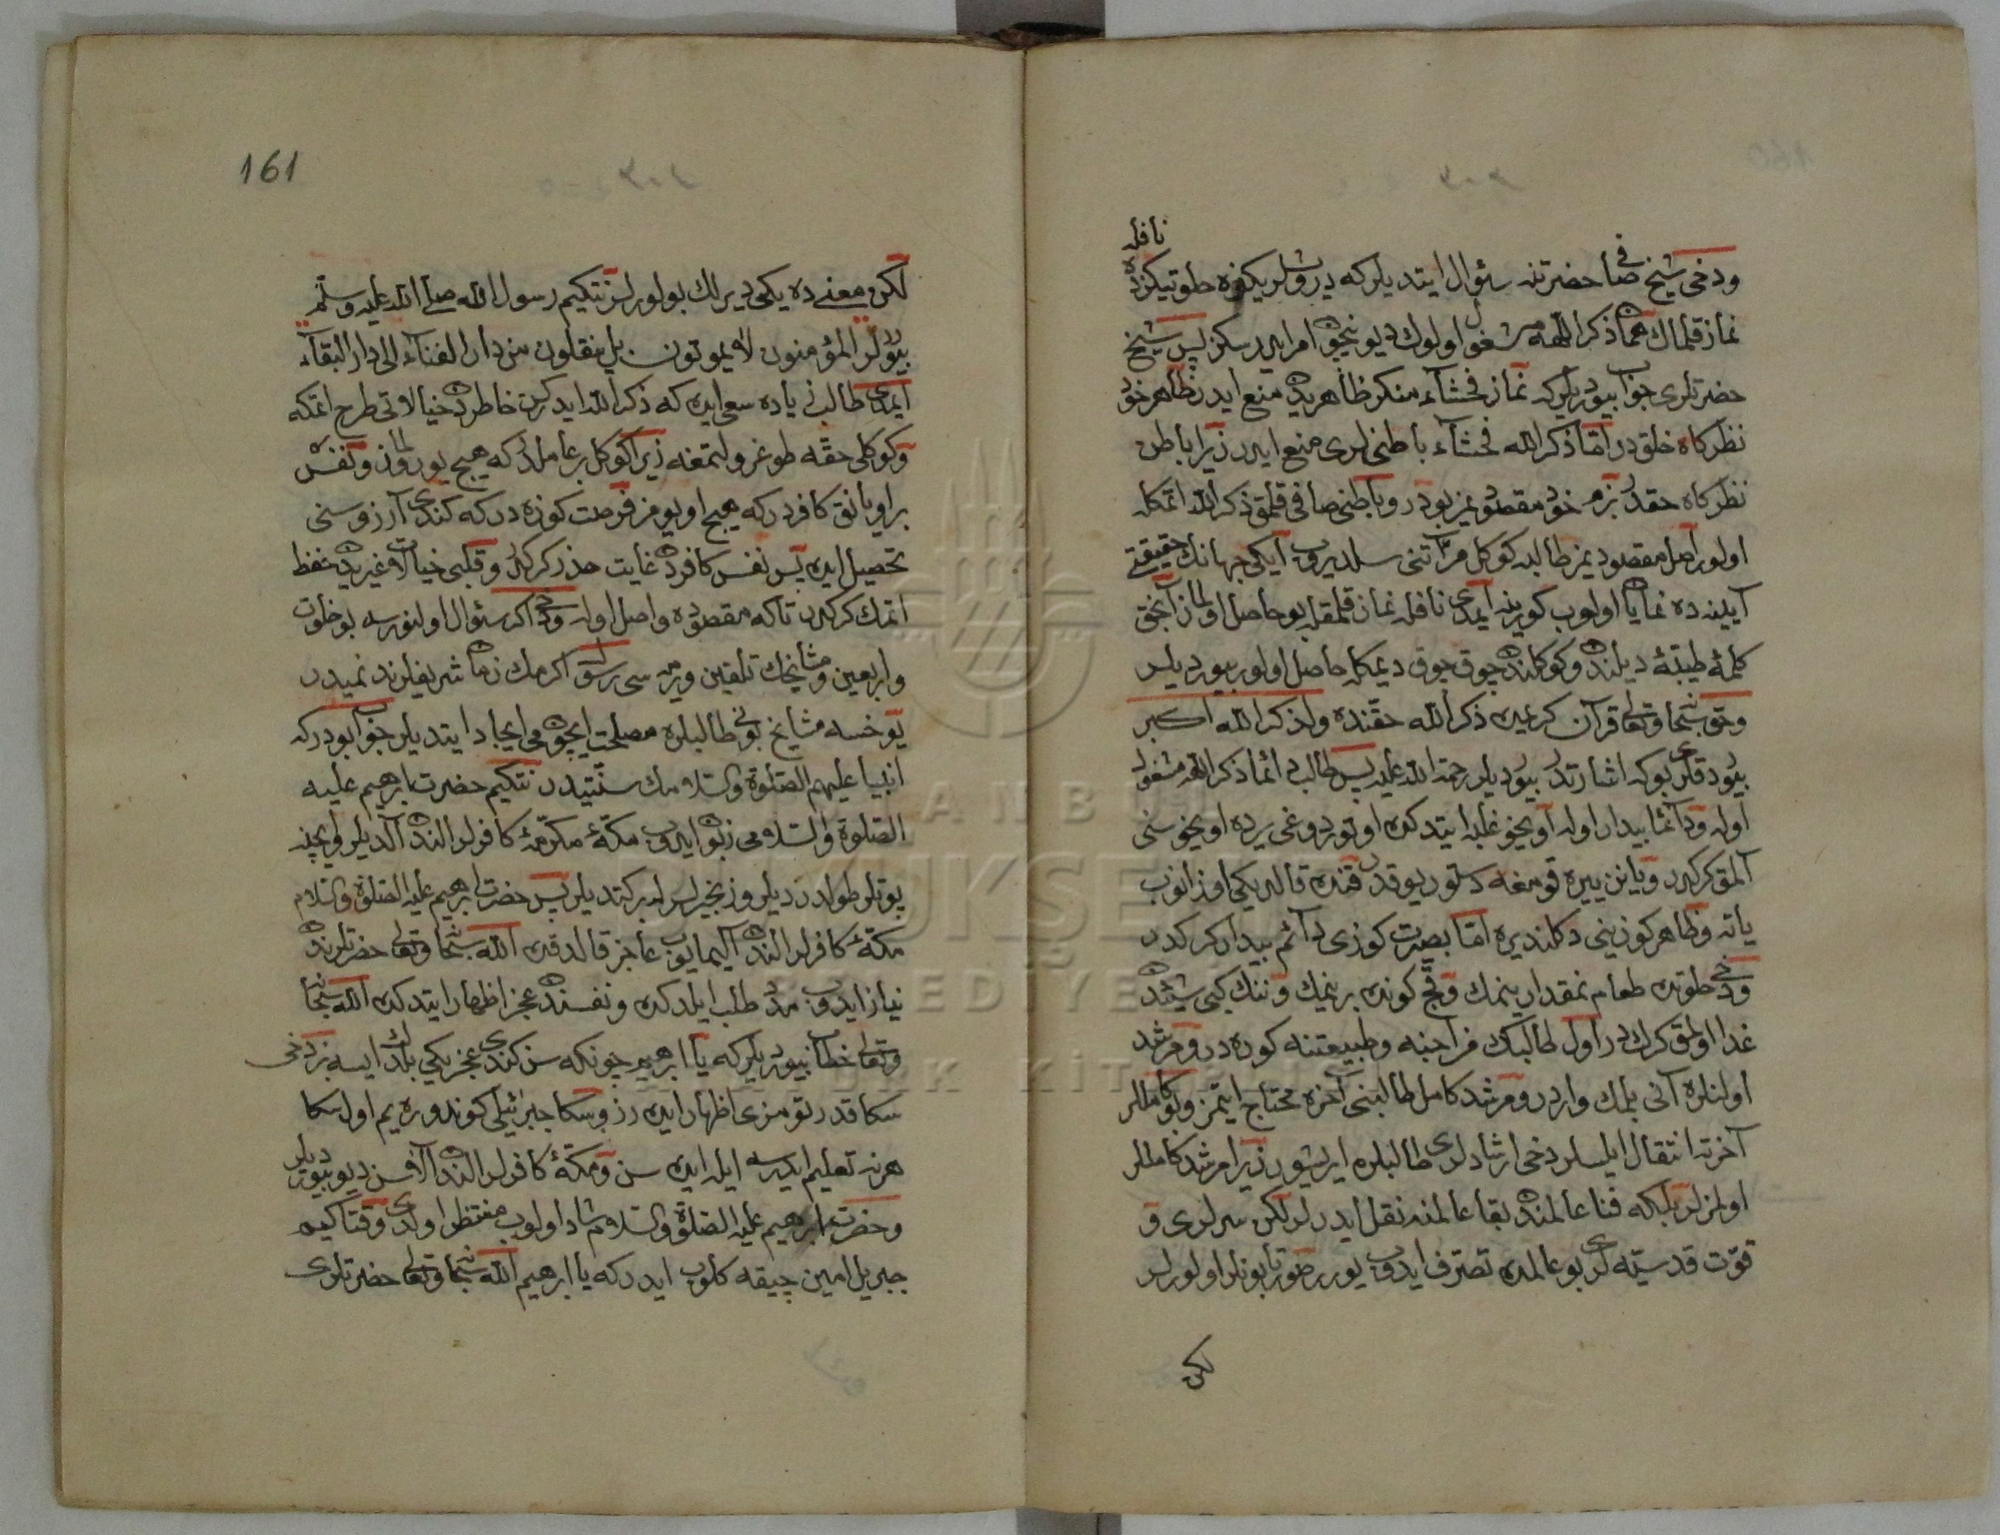 نافله
ودخی شیخ صافی حضرتنه سؤال ایتدیلر که درویشلریکزه خلوتیکزده
نماز قلماك همان ذکر اللهه مشغول اولوك دیو نیچون امر ایدرسکز پس شیخ
حضرتلری جواب بیوردیلر که نماز فحشاء منکر ظاهریدن منع ایدر ظاهر خود
نظرکاه خلقدر اما ذکر الله فحشاء باطنیلری منع ایدر زیرا باطن
نظرکاه حقدر بزم خود مقصودیمز بودر وباطنی صافی قلمق ذکر الله اتمکله
اولور اصل مقصودیمز طالبه کوکل مرآتنی سلدیروب ایکی جهانك حقیقتی
آیینه ده نمایان اولوب کورینه ایمدی نافله نماز قلمقله بو حاصل اولماز آنجق
کلمۀ طیبۀ دیلندن وکوکلندن چوق چوق دیمکله حاصل اولور بیوردیلر
وحق سبحانه وتعالی قرآن کریمده ذکر الله حقنده ولذکر الله اکبر
بیوردقلری بوکه اشارتدر بیوردیلر رحمة الله علیه پس طالب دائما ذکر اللهه مشغول
اوله ودائما بیدار اوله اویخو غلبه ایتدکده اوتوردوغی یرده اویخوسنی
آلمق کرکدر ویانن ییره قومغه دستور یوقدر قنده قالدیکی اوزانوب
یاته وظاهر کوزینی دکلندیره اما بصیرت کوزی دائم بیدار کرکدر
ودخی خلوتده طعام نمقدار ینمك وقچ کونده بر ینمك وننك کبی شیئدن
غدا اولمق کرکدر اول طالبك مزاجنه وطبیعتنه کوره در ومرشد
اولنلره آنی بلمك واردر ومرشد کامل طالبنی آخره محتاج ایتمز وبو کامللر
آخرته انتقال ایلسلر دخی ارشادلری طالبلره ایریشور زیرا مرشد کامللر
اولمزلر بلکه فنا عالمندن بقا عالمنه نقل ایدرلر لکن سرلری و
قوت قدسیه لری بو عالمده تصرف ایدوب یورر صورتا بونلر اولورلر
لکن
161
لکن معنی ده یکی دیرلك بولورلر نتکیم رسول الله صلی الله علیه وسلم
بیورر المؤمنون لا یموتون بل ینقلون من دار الفناء الی دار البقاء
ایمدی طالب زیاده سعی ایده که ذکر الله ایدرکن خاطردن خیالاتی طرح اتمکه
وکوکلی حقه طوغرولتمغه زیرا کوکل بر عاملدر که هیچ یورولماز ونفس
بر اویانق کافردر که هیچ اویومز فرصت کوزه در که کندی آرزوسنی
تحصیل ایده پس نفس کافردن غایت حذر کرکدر وقلبی خیالات غیریدن حفظ
اتمك کرکدر تا که مقصوده واصل اوله ودخی اکر سؤال اولنورسه بو خلوت
واربعین ومشایخك تلقین ویرمسی رسول اکرمك زمان شریفلرنده میدر
یوخسه مشایخ بونی طالبلره مصلحت ایچون می ایجاد ایتدیلر جواب بودر که
انبیا علیهم الصلوة والسلامك سنتیدر نتکیم حضرت ابرهیم علیه
الصلوة والسلامی زبون ایدوب مکۀ مکرمۀ کافرلر الندن آلدیلر وایچنه
پوتلر طولدردیلر وزنجیرلر له برکتدیلر پس حضرت ابرهیم علیه الصلوة والسلام
مکۀ کافرلر الندن آلیمایوب عاجز قالدقده الله سبحانه وتعالی حضرتلرندن
نیاز ایدوب مدد طلب ایلدکده ونفسندن عجز اظهار ایتدکده الله سبحانه
وتعالی خطاب بیوردیلر که یا ابرهیم چونکه سن کندی عجزیکی بلدك ایسه بز دخی
سکا قدرتومزی اظهار ایده رز وسکا جبرئیلی کوندوره یم اول سکا
هر نه تعلیم ایدرسه ایله ایده سن ومکۀ کافرلر الندن آلاسن دیو بیوردیلر
وحضرت ابرهیم علیه الصلوة والسلام شاد اولوب منتظر اولدی وقتاکیم
جبریل امین چیقه کلوب ایدر که یا ابرهیم الله سبحانه وتعالی حضرتلری